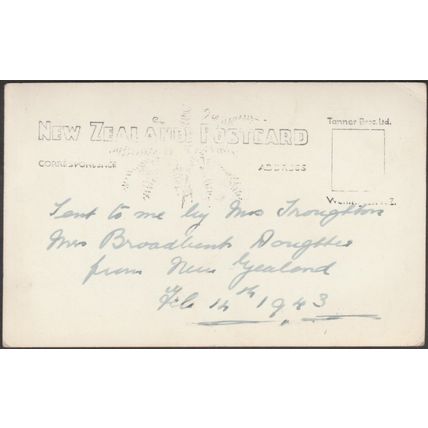 Tanner Bros. Ltd.
NEW ZEALAND POSTCARD
CORRESPONDENCE ADDRESS
Wellington N.Z.
Sent to me by Mrs Troughton
Mrs Broadbent Doughter
from New Zealand
Feb 14th 1943